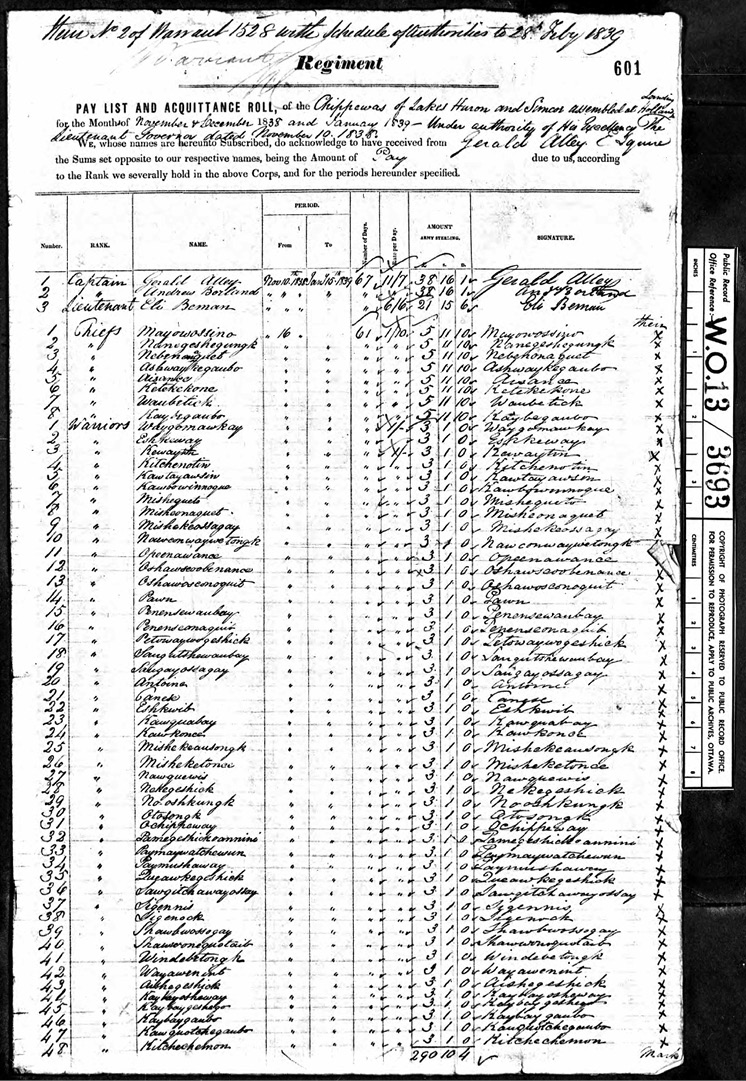 Item No 2 of Warrant 1528 with Schedule of authorities to 28th Feby 1839
Warrant
Regiment
601
PAY LIST AND ACQUITTANCE ROLL, of the Chippewas of Lakes Huron and Simcoe assembled at Holland Landing
for the Months of November & December 1838 and January 1839 - Under authority of His Excellency The
Lieutenant Governor dated November 10. 1838.
WE, whose names are hereunto Subscribed, do acknowledge to have received from Gerald Alley Esquire
the Sums set opposite to our respective names, being the Amount of Pay due to us, according
to the Rank we severally hold in the above Corps, and for the periods hereunder specified.
PERIOD.
Number. RANK. NAME. From To Number of Days. Rate per Day. AMOUNT ARMY STERLING. SIGNATURE.
£. S. D.
1 Captain Gerald Alley Nov 10th 1838 Jany 15th 1839 67 11/7 38 16 1 Gerald Alley
2 " Andrew Borland " " " " " " 38 16 1 And Borland
3 Lieutenant Eli Beman 6/6 21 15 6 Eli Beman
their
1 Chiefs Mayowossino " 16 " 61 1/10 5 11 10 Mayowossino x
2 " Nanegeshegungk " " " " 5 11 10 Nanegeshegungk x
3 " Nebenaquet " " " " 5 11 10 Nebphonaquet x
4 " Ashwaykegaubo " " " " 5 11 10 Ashwaykegaubo x
5 " Aisance " " " " 5 11 10 Aisance x
6 " Ketekekone " " " " 5 11 10 Ketekekone x
7 " Waubetick " " " " 5 11 10 Waubetick x
8 " Kaybegaubo " " " " 5 11 10 Kaybegaubo x
1 Warriors Waygomawkay " " " 1/- 3 1 0 Waygomawkey x
2 " Eshkeway " " " " 3 1 0 Eskkeway x
3 " Kewaytin " " " 1/- 3 1 0 Kewaytin x
4 " Kitchenotin " " " " 3 1 0 Kitchenotin x
5 " Kawtayawsin " " " " 3 1 0 Kawtayawson x
6 " Kawbowinnogue " " " " 3 1 0 Kawbowinnogue x
7 " Mishequeto " " " " 3 1 0 Mishequeto x
8 " Misheonaquet " " " " 3 1 0 Misheonaquet x
9 " Mishekeossagay " " " " 3 1 0 Mishekeossagay x
10 " Nawconwaywetongk " " " " 3 1 0 Nawconwaywetongk x
11 " Opeenawance " " " " 3 1 0 Opeenawance x
12 " Oshawscoobenance " " " " 3 1 0 Oshawscoobenance x
13 " Oshawosconoquit " " " " 3 1 0 Oshawosconoquit x
14 " Pawn " " " " 3 1 0 Pawn x
15 " Penensewaubay " " " " 3 1 0 Penensewaubay x
16 " Penenseonaquit " " " " 3 1 0 Penenseonaquib x
17 " Petowaywogeshick " " " " 3 1 0 Petowaywogeshick x
18 " Saugitchewaubay " " " " 3 1 0 Saugitchewaubay x
19 " Saugayossagay " " " " 3 1 0 Saugayossagay x
20 " Antoine " " " " 3 1 0 Antoine x
21 " Canese " " " " 3 1 0 Canese x
22 " Eshkwit " " " " 3 1 0 Eshkwit x
23 " Kawquabay " " " " 3 1 0 Kawquabay x
24 " Kawkonce " " " " 3 1 0 Kawkonce x
25 " Mishekeausongk " " " " 3 1 0 Mishekeausongk x
26 " Misheketonce " " " " 3 1 0 Misheketonce x
27 " Nawquewis " " " " 3 1 0 Nawquewis x
28 " Nekegeshick " " " " 3 1 0 Nekegeshick x
29 " Nooshkungk " " " " 3 1 0 Nooshkungk x
30 " Otosongk " " " " 3 1 0 Otosongk x
31 " Ochippeway " " " " 3 1 0 Ochippeway x
32 " Pamegeshickoannini " " " " 3 1 0 Pamegeshickoannini x
33 " Paymaywatchewun " " " " 3 1 0 Paymaywatchewun x
34 " Paymushaway " " " " 3 1 0 Paymushawey x
35 " Queawkegeshick " " " " 3 1 0 Queawkegeshick x
36 " Sawgitchawayossay " " " " 3 1 0 Sawgitchawayossay x
37 " Sigennis " " " " 3 1 0 Sigennis x
38 " Sigenock " " " " 3 1 0 Sigenock x
39 " Shawbwossogay " " " " 3 1 0 Shawbwossogay x
40 " Shawwonoquotait " " " " 3 1 0 Shawwonoquotait x
41 " Windebetongk " " " " 3 1 0 Windebetongk x
42 " Wayawenint " " " " 3 1 0 Wayawenint x
43 " Aishegeshick " " " " 3 1 0 Aishegeshick x
44 " Kaybayosheway " " " " 3 1 0 Kaybayosheway x
45 " Kaybaygeshego " " " " 3 1 0 Kaybaygeshego x
46 " Kaybaygaubo " " " " 3 1 0 Kaybaygaubo x
47 " Kawquotchegaubo " " " " 3 1 0 Kauquotchegaubo x
48 " Kitchechemon " " " " 3 1 0 Kitchechemon x
290 10 4
Mark
Public Record Office Reference:-
W.O. 13/3693
INCHES
CENTIMETRES
COPYRIGHT OF PHOTOGRAPH RESERVED TO PUBLIC RECORD OFFICE.
FOR PERMISSION TO REPRODUCE, APPLY TO PUBLIC ARCHIVES, OTTAWA.